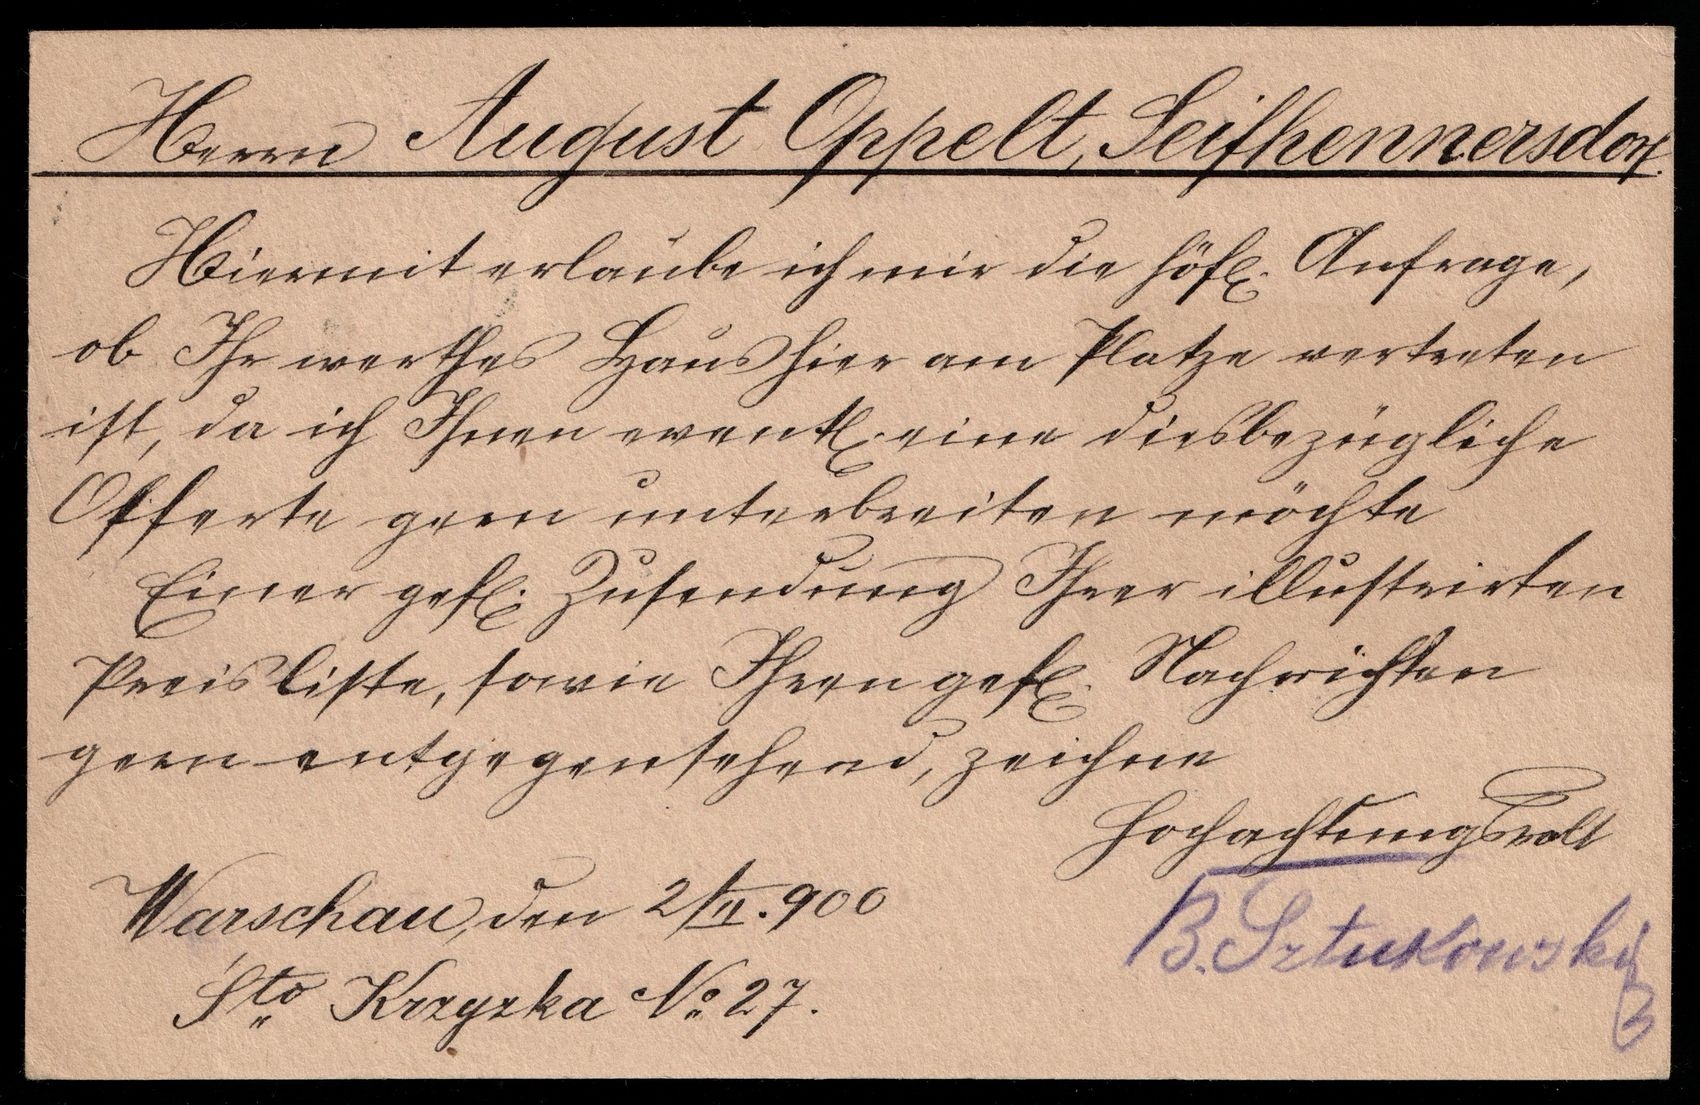 Herrn August Oppelt, Seifhennersdorf.
Hiermit erlaube ich mir die höfl. Anfrage,
ob Ihr werthes Haus hier am Platze vertreten
ist, da ich Ihnen eventl. eine diesbezügliche
Offerte gern unterbreiten möchte
Einer gefl. Zusendung Ihrer illustrirten
Preisliste, sowie Ihren gefl. Nachrichten
gern entgegensehend, zeichne
Hochachtungsvoll
Warschau, den 2/II. 900
B. Sztukowski
Sto Krzyzka No 27.